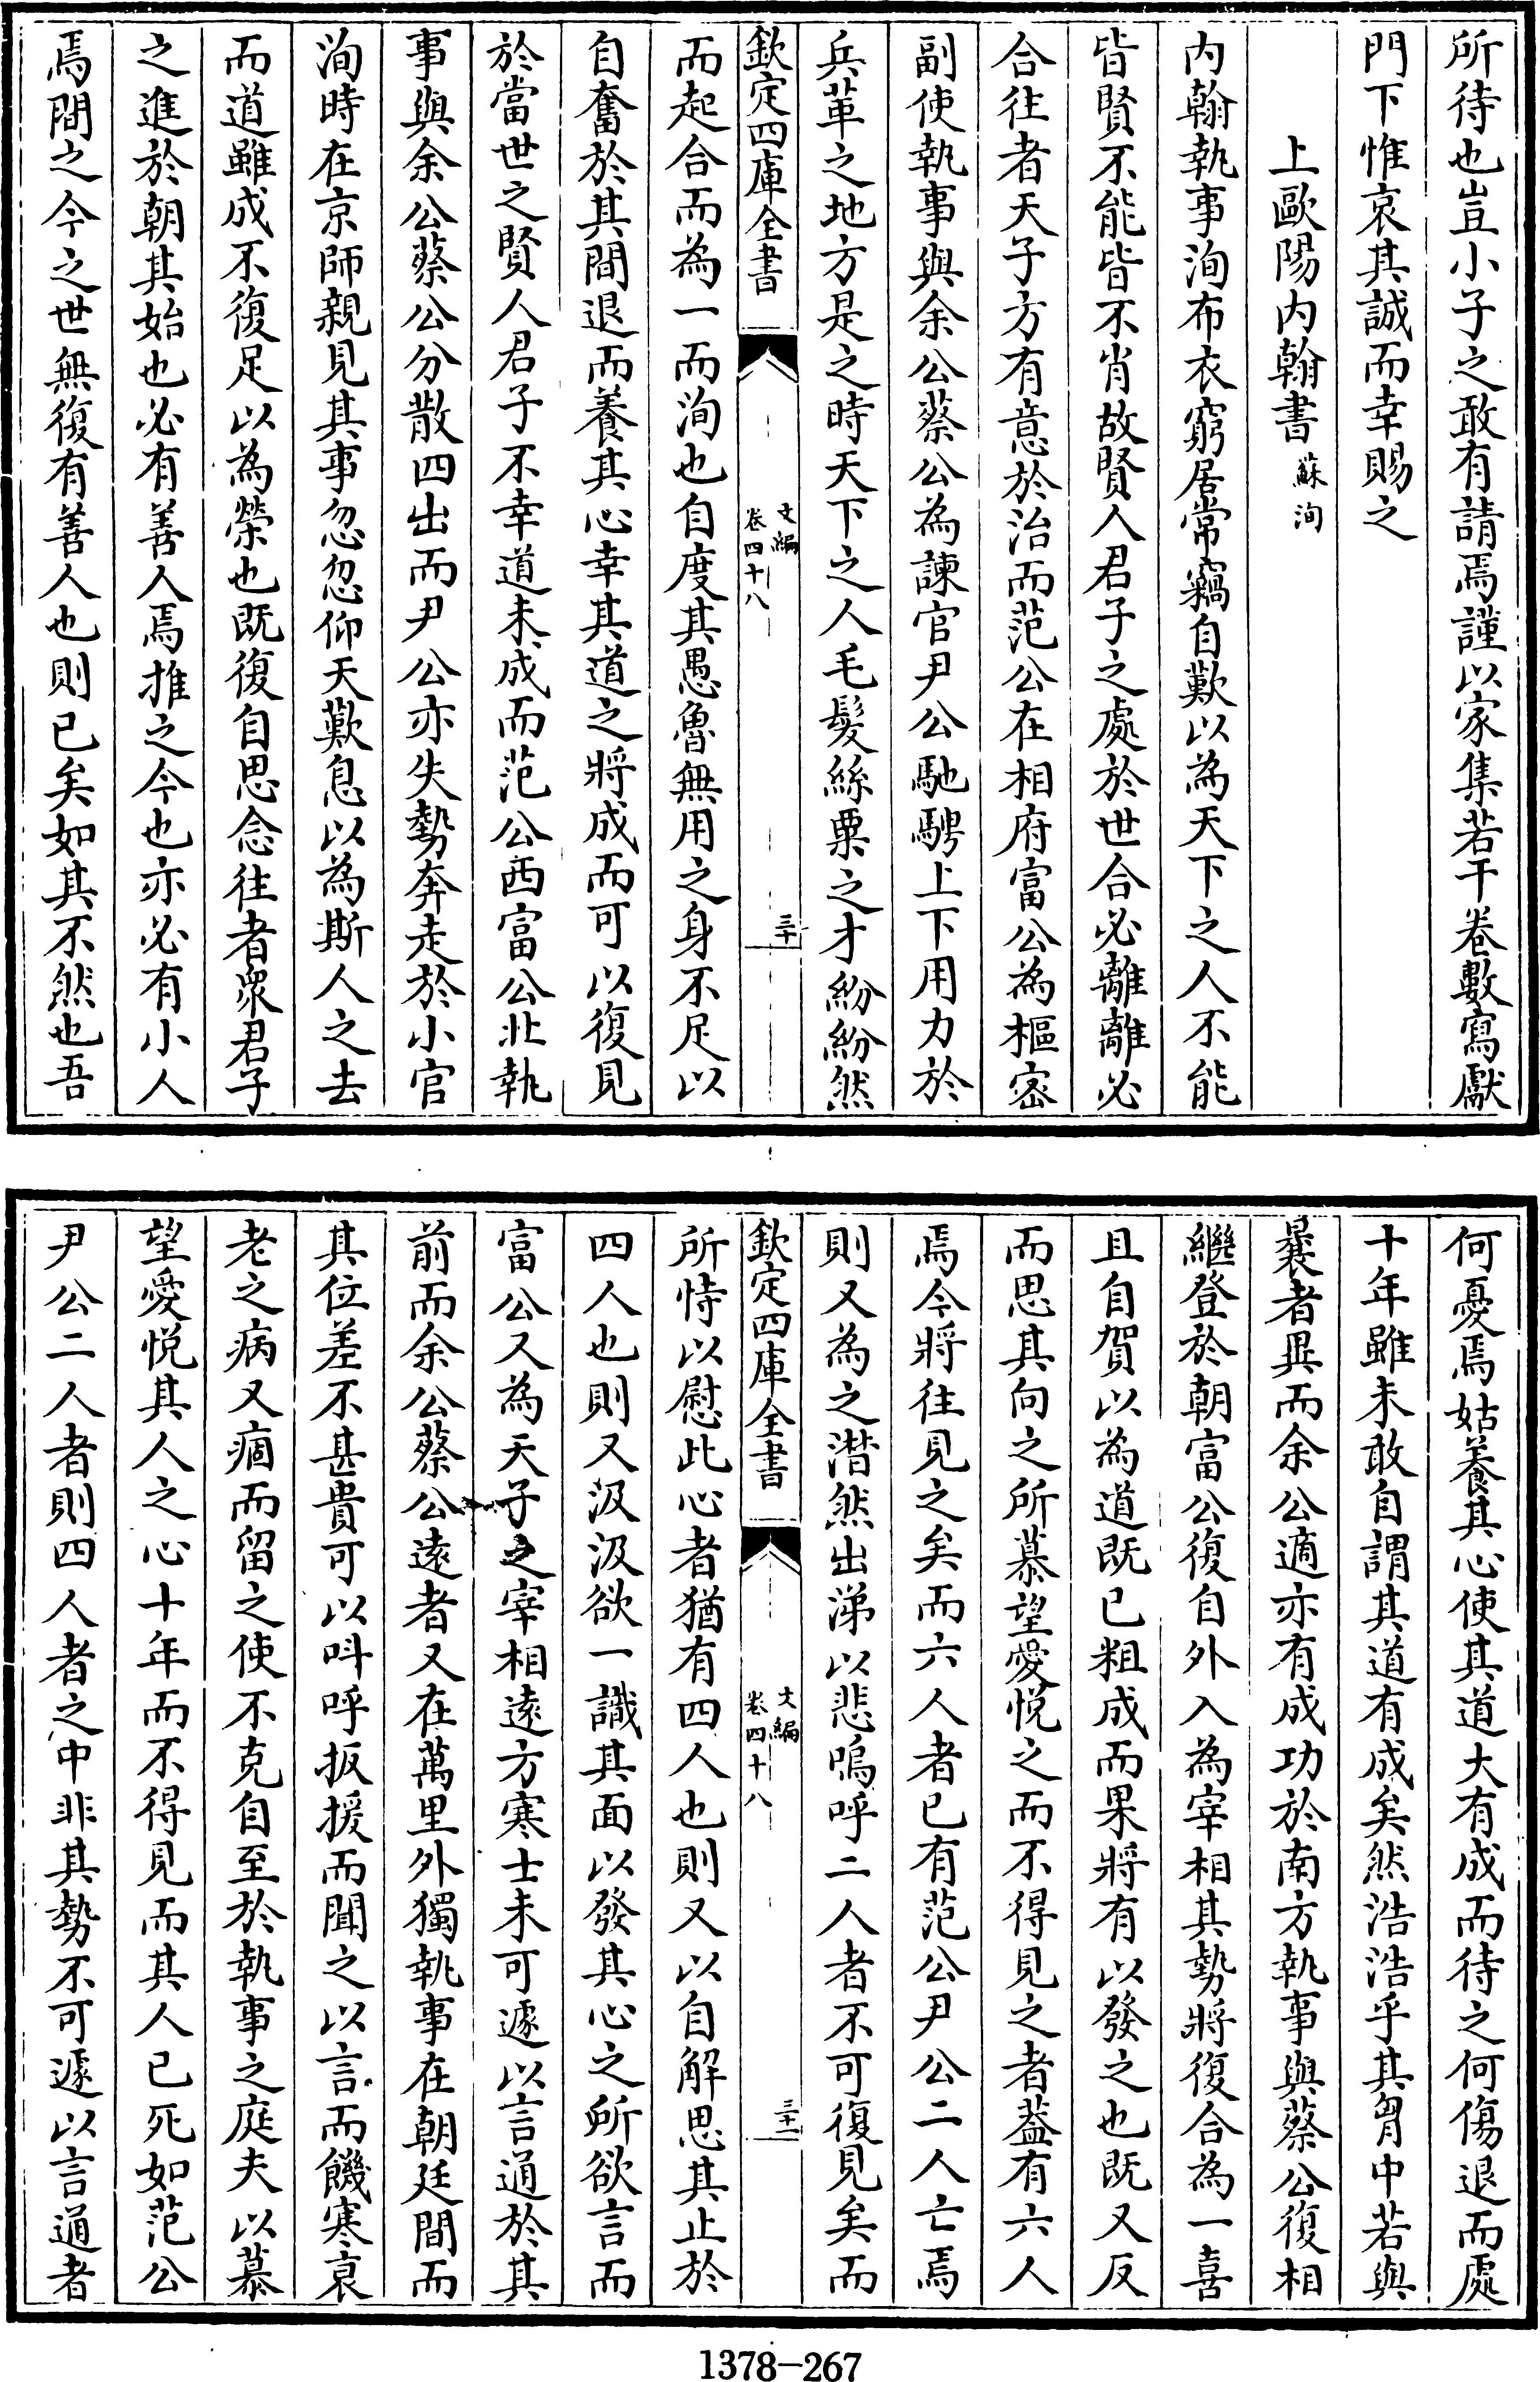 所待也豈小子之敢有請焉謹以家集若干卷數寫獻
門下惟哀其誠而幸賜之
上歐陽内翰書 蘇洵
内翰執事洵布衣窮居常竊自歎以為天下之人不能
皆賢不能皆不肖故賢人君子之處於世合必離離必
合往者天子方有意於治而范公在相府富公為樞密
副使執事與余公蔡公為諫官尹公馳騁上下用力於
兵革之地方是之時天下之人毛髮絲粟之才紛紛然
欽定四庫全書 文編 卷四十八 三十
而起合而為一而洵也自度其愚魯無用之身不足以
自奮於其間退而養其心幸其道之將成而可以復見
於當世之賢人君子不幸道未成而范公西富公北執
事與余公蔡公分散四出而尹公亦失勢奔走於小官
洵時在京師親見其事忽忽仰天歎息以為斯人之去
而道雖成不復足以為榮也既復自思念往者衆君子
之進於朝其始也必有善人焉推之今也亦必有小人
焉間之今之世無復有善人也則已矣如其不然也吾
何憂焉姑養其心使其道大有成而待之何傷退而處
十年雖未敢自謂其道有成矣然浩浩乎其胷中若與
曩者異而余公適亦有成功於南方執事與蔡公復相
繼登於朝富公復自外入為宰相其勢將復合為一喜
且自賀以為道既已粗成而果將有以發之也既又反
而思其向之所慕望愛悦之而不得見之者葢有六人
焉今將往見之矣而六人者已有范公尹公二人亡焉
則又為之潸然出涕以悲嗚呼二人者不可復見矣而
欽定四庫全書 文編 卷四十八 三十一
所恃以慰此心者猶有四人也則又以自解思其止於
四人也則又汲汲欲一識其面以發其心之所欲言而
富公又為天子之宰相遠方寒士未可遽以言通於其
前而余公蔡公遠者又在萬里外獨執事在朝廷間而
其位差不甚貴可以呌呼扳援而聞之以言而饑寒衰
老之病又痼而留之使不克自至於執事之庭夫以慕
望愛悦其人之心十年而不得見而其人已死如范公
尹公二人者則四人者之中非其勢不可遽以言通者
1378—267